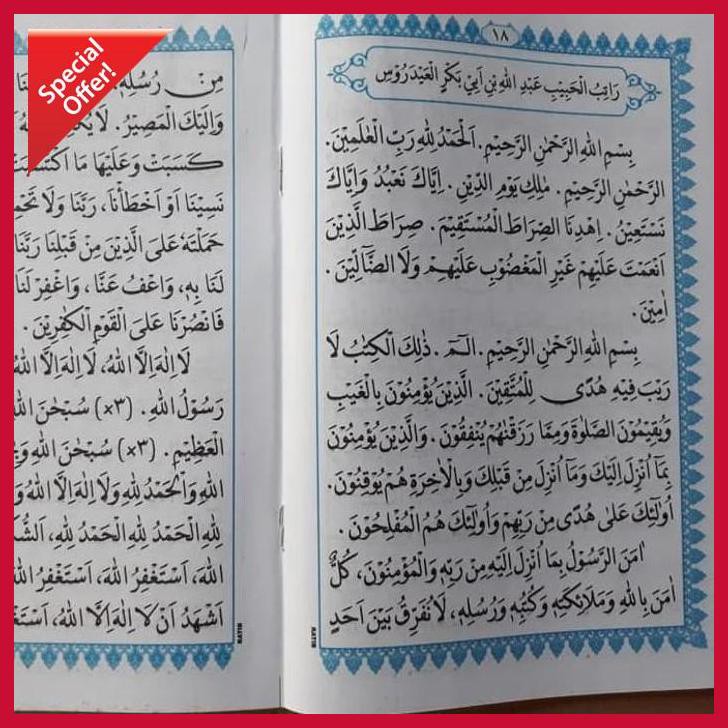 Special
Offer!
١٨
رَاتِبُ الْحَبِيْبِ عَبْدِ اللهِ بْنِ اَبِيْ بَكْرٍ الْعَيْدَرُوْسِ
بِسْمِ اللهِ الرَّحْمٰنِ الرَّحِيْمِ. اَلْحَمْدُ لِلّٰهِ رَبِّ الْعٰلَمِيْنَ.
الرَّحْمٰنِ الرَّحِيْمِ. مٰلِكِ يَوْمِ الدِّيْنِ. اِيَّاكَ نَعْبُدُ وَاِيَّاكَ
نَسْتَعِيْنُ. اِهْدِنَا الصِّرَاطَ الْمُسْتَقِيْمَ. صِرَاطَ الَّذِيْنَ
اَنْعَمْتَ عَلَيْهِمْ غَيْرِ الْمَغْضُوْبِ عَلَيْهِمْ وَلَا الضَّآلِّيْنَ.
اٰمِيْنَ.
بِسْمِ اللهِ الرَّحْمٰنِ الرَّحِيْمِ. الٓـمّٓ. ذٰلِكَ الْكِتٰبُ لَا
رَيْبَ فِيْهِ هُدًى لِلْمُتَّقِيْنَ. الَّذِيْنَ يُؤْمِنُوْنَ بِالْغَيْبِ
وَيُقِيْمُوْنَ الصَّلٰوةَ وَمِمَّا رَزَقْنٰهُمْ يُنْفِقُوْنَ. وَالَّذِيْنَ يُؤْمِنُوْنَ
بِمَا اُنْزِلَ اِلَيْكَ وَمَا اُنْزِلَ مِنْ قَبْلِكَ وَبِالْاٰخِرَةِ هُمْ يُوْقِنُوْنَ.
اُولٰئِكَ عَلٰى هُدًى مِنْ رَبِّهِمْ وَاُولٰئِكَ هُمُ الْمُفْلِحُوْنَ.
اٰمَنَ الرَّسُوْلُ بِمَا اُنْزِلَ اِلَيْهِ مِنْ رَبِّهٖ وَالْمُؤْمِنُوْنَ، كُلٌّ
اٰمَنَ بِاللهِ وَمَلَائِكَتِهٖ وَكُتُبِهٖ وَرُسُلِهٖ، لَانُفَرِّقُ بَيْنَ اَحَدٍ
RATIB
مِنْ رُسُلِهٖ
وَاِلَيْكَ الْمَصِيْرُ.
كَسَبَتْ وَعَلَيْهَا مَا
نَسِيْنَا اَوْ اَخْطَأْنَا، رَبَّنَا وَلَا
حَمَلْتَهٗ عَلَى الَّذِيْنَ مِنْ قَبْلِنَا رَبَّنَا
لَنَا بِهٖ، وَاعْفُ عَنَّا، وَاغْفِرْ لَنَا
فَانْصُرْنَا عَلَى الْقَوْمِ الْكٰفِرِيْنَ.
لَا اِلٰهَ اِلَّا اللهُ، لَا اِلٰهَ اِلَّا اللهُ
رَسُوْلُ اللهِ. (٣×) سُبْحٰنَ
الْعَظِيْمِ. (٣×) سُبْحٰنَ اللهِ
اللهِ وَالْحَمْدُ لِلّٰهِ وَلَا اِلٰهَ اِلَّا اللهُ
لِلّٰهِ الْحَمْدُ لِلّٰهِ الْحَمْدُ لِلّٰهِ،
اللهَ، اَسْتَغْفِرُ اللهَ، اَسْتَغْفِرُ
اَشْهَدُ اَنْ لَا اِلٰهَ اِلَّا اللهُ،
RATIB